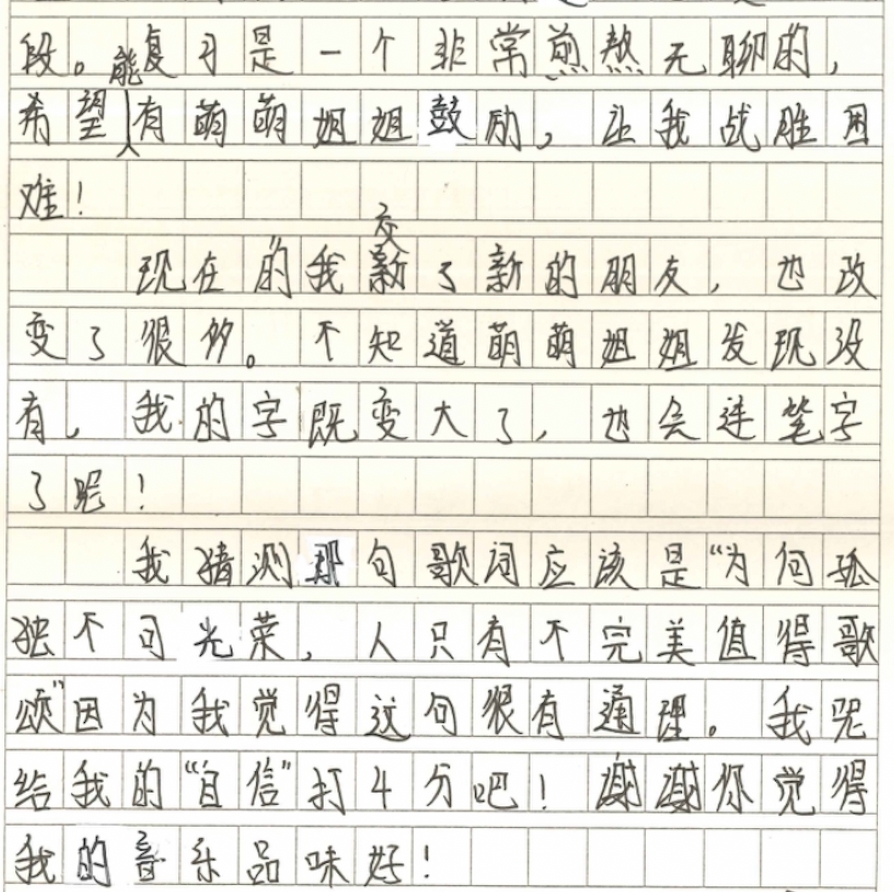 段。复习是一个非常煎熬无聊的,
希望能有萌萌姐姐鼓励,让我战胜困
难!
现在的我交了新的朋友,也改
变了很多。不知道萌萌姐姐发现没
有,我的字既变大了,也会连笔字
了呢!
我猜测那句歌词应该是“为何孤
独不可光荣,人只有不完美值得歌
颂”因为我觉得这句很有道理。我就
给我的“自信”打4分吧!谢谢你觉得
我的音乐品味好!